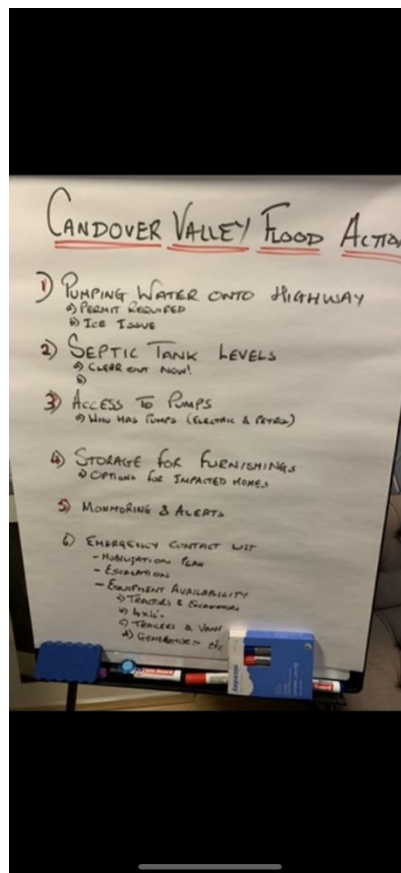 CANDOVER VALLEY FLOOD ACTIO
1) PUMPING WATER ONTO HIGHWAY
a) PERMIT REQUIRED
b) ICE ISSUE
2) SEPTIC TANK LEVELS
a) CLEAR OUT NOW!
b)
3) ACCESS TO PUMPS
a) WHO HAS PUMPS (ELECTRIC & PETROL)
4) STORAGE FOR FURNISHINGS
a) OPTIONS FOR IMPACTED HOMES
5) MONITORING & ALERTS
6) EMERGENCY CONTACT LIST
- MOBILISATION PLAN
- ESCALATION
- EQUIPMENT AVAILABILITY
a) TRACTORS & EXCAVATORS
b) 4x4's
c) TRAILERS & VANS
d) GENERATORS etc